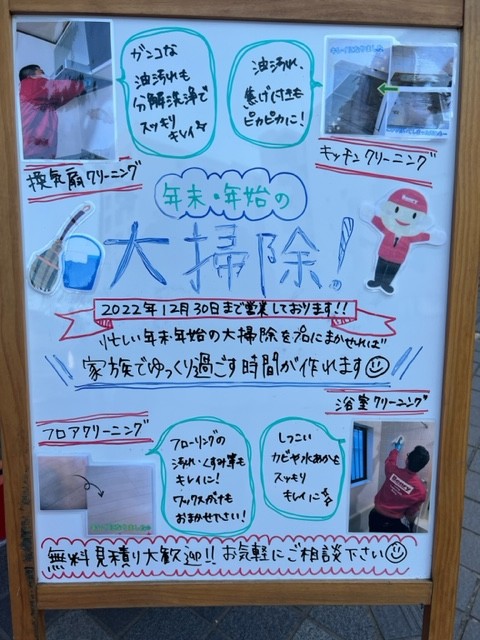 ガンコな
油汚れも
分解洗浄で
スッキリ
キレイ
油汚れ、
焦げ付きも
ピカピカに!
換気扇クリーニング
キッチンクリーニング
年末・年始の
大掃除!
2022年12月30日まで営業しております!!
忙しい年末年始の大掃除をプロにまかせれば
家族でゆっくり過ごす時間が作れます
浴室クリーニング
フロアクリーニング
フローリングの
汚れ・くすみ等も
キレイに!
ワックスがけも
おまかせ下さい!
しつこい
カビや水あかも
スッキリ
キレイに
無料見積り大歓迎!! お気軽にご相談下さい